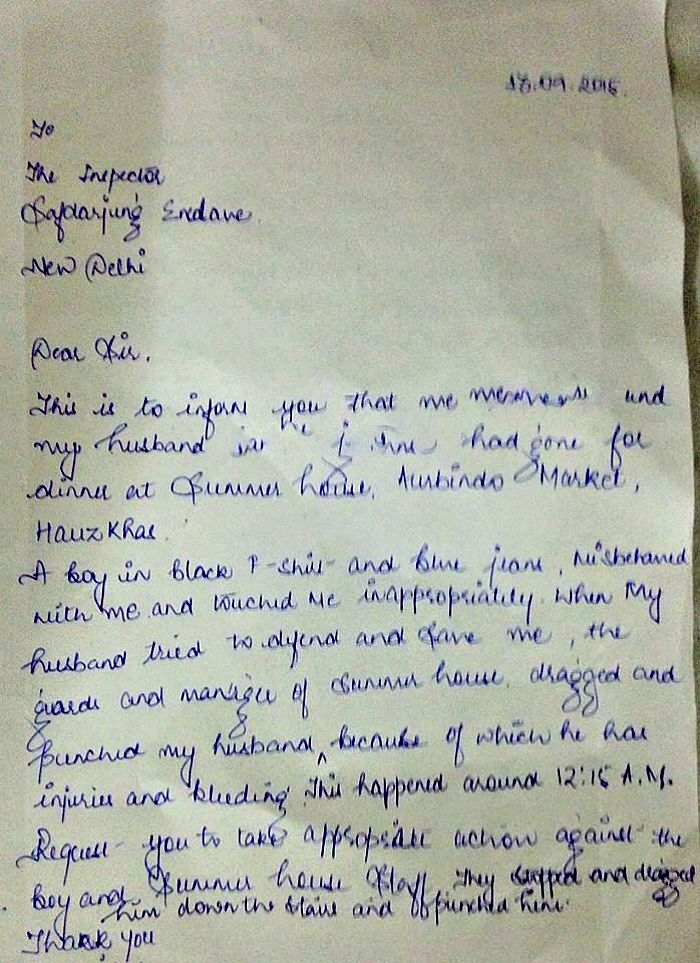 18.09.2015
To
The Inspector
Safdarjung Enclave
New Delhi
Dear Sir,
This is to inform you that me and
my husband had gone for
dinner at Summer house, Aurbindo Market,
Hauz Khas.
A boy in black T-shirt and blue jeans, misbehaved
with me and touched me inappropriately. When my
husband tried to defend and save me, the
guards and manager of Summer house, dragged and
punched my husband, because of which he has
injuries and bleeding. This happened around 12:15 A.M.
Request you to take appropriate action against the
boy and Summer house Staff. They and dragged
him down the stairs and punched him.
Thank you